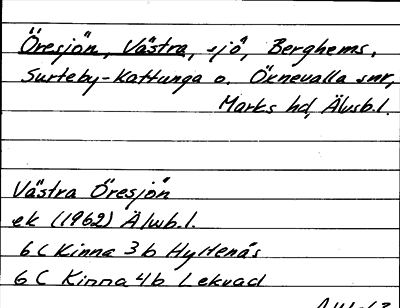 Öresjön, Västra, sjö, Berghems,
Surteby-Kattunga o. Öxnevalla snr,
Marks hd, Älvsb.l.
Västra Öresjön
ek (1962) Älvsb.l.
6 C Kinna 3b Hyltenäs
6 C Kinna 4b Lekvad